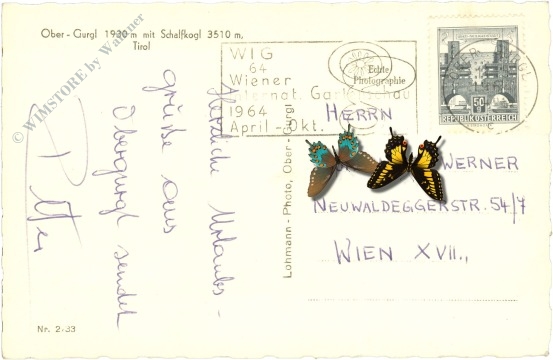 Ober-Gurgl 1930 m mit Schalfkogl 3510 m,
Tirol
© WIMSTORE by Wagner
WIG
64
Wiener
Internat. Gartenschau
1964
April - Okt.
Echte
Photographie
50 g
REPUBLIK ÖSTERREICH
Herzliche Urlaubs-
grüße aus
Obergurgl sendet
Lohmann - Photo, Ober-Gurgl
HERRN
WERNER
NEUWALDEGGERSTR. 54/7
WIEN XVII.,
Nr. 2-33